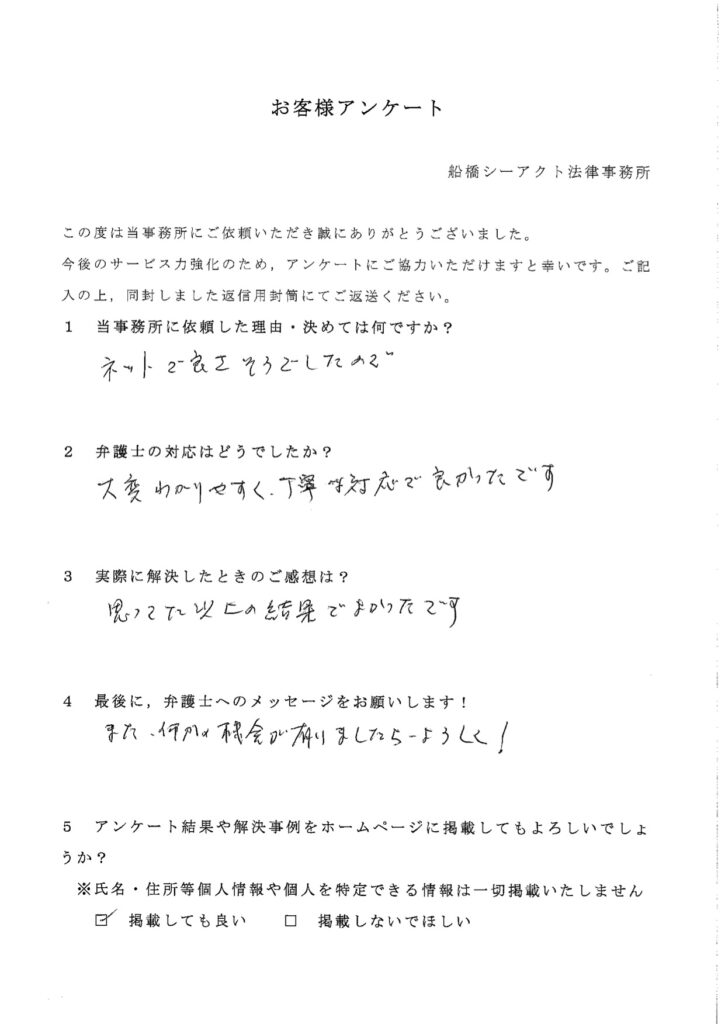 お客様アンケート
船橋シーアクト法律事務所
この度は当事務所にご依頼いただき誠にありがとうございました。
今後のサービス力強化のため，アンケートにご協力いただけますと幸いです。ご記
入の上，同封しました返信用封筒にてご返送ください。
1　当事務所に依頼した理由・決めては何ですか？
ネットで良さそうでしたので
2　弁護士の対応はどうでしたか？
大変わかりやすく、丁寧な対応で良かったです
3　実際に解決したときのご感想は？
思ってた以上の結果でよかったです
4　最後に，弁護士へのメッセージをお願いします！
また、何かの機会が有りましたらよろしく！
5　アンケート結果や解決事例をホームページに掲載してもよろしいでしょ
うか？
※氏名・住所等個人情報や個人を特定できる情報は一切掲載いたしません
☑　掲載しても良い　　□　掲載しないでほしい